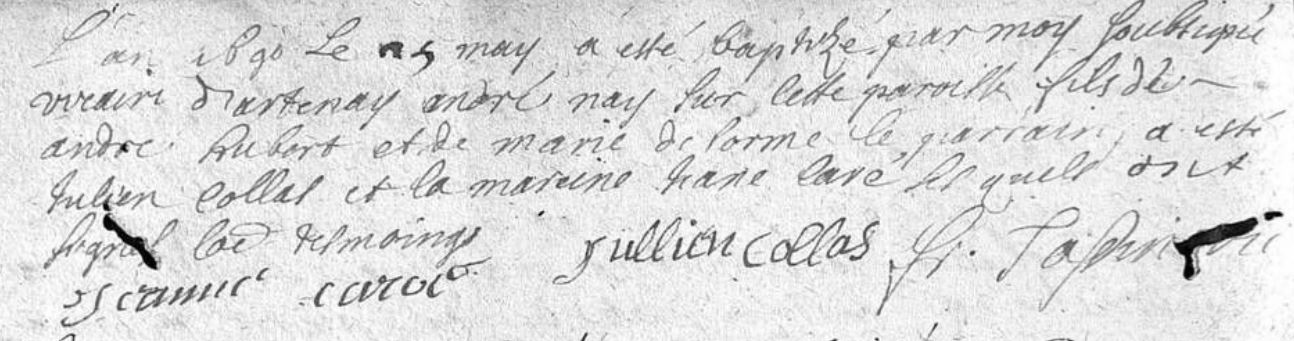 L'an 1690 Le 25 may a esté baptizé par moy soubsigné
vicaire d'artenay andré nay sur cette paroisse fils de
andre hubert et de marie delorme le parrain a esté
Julien Collas et la mareine Jeane Caré les quels ont
signes tesmoings
Jullien Collas fr.